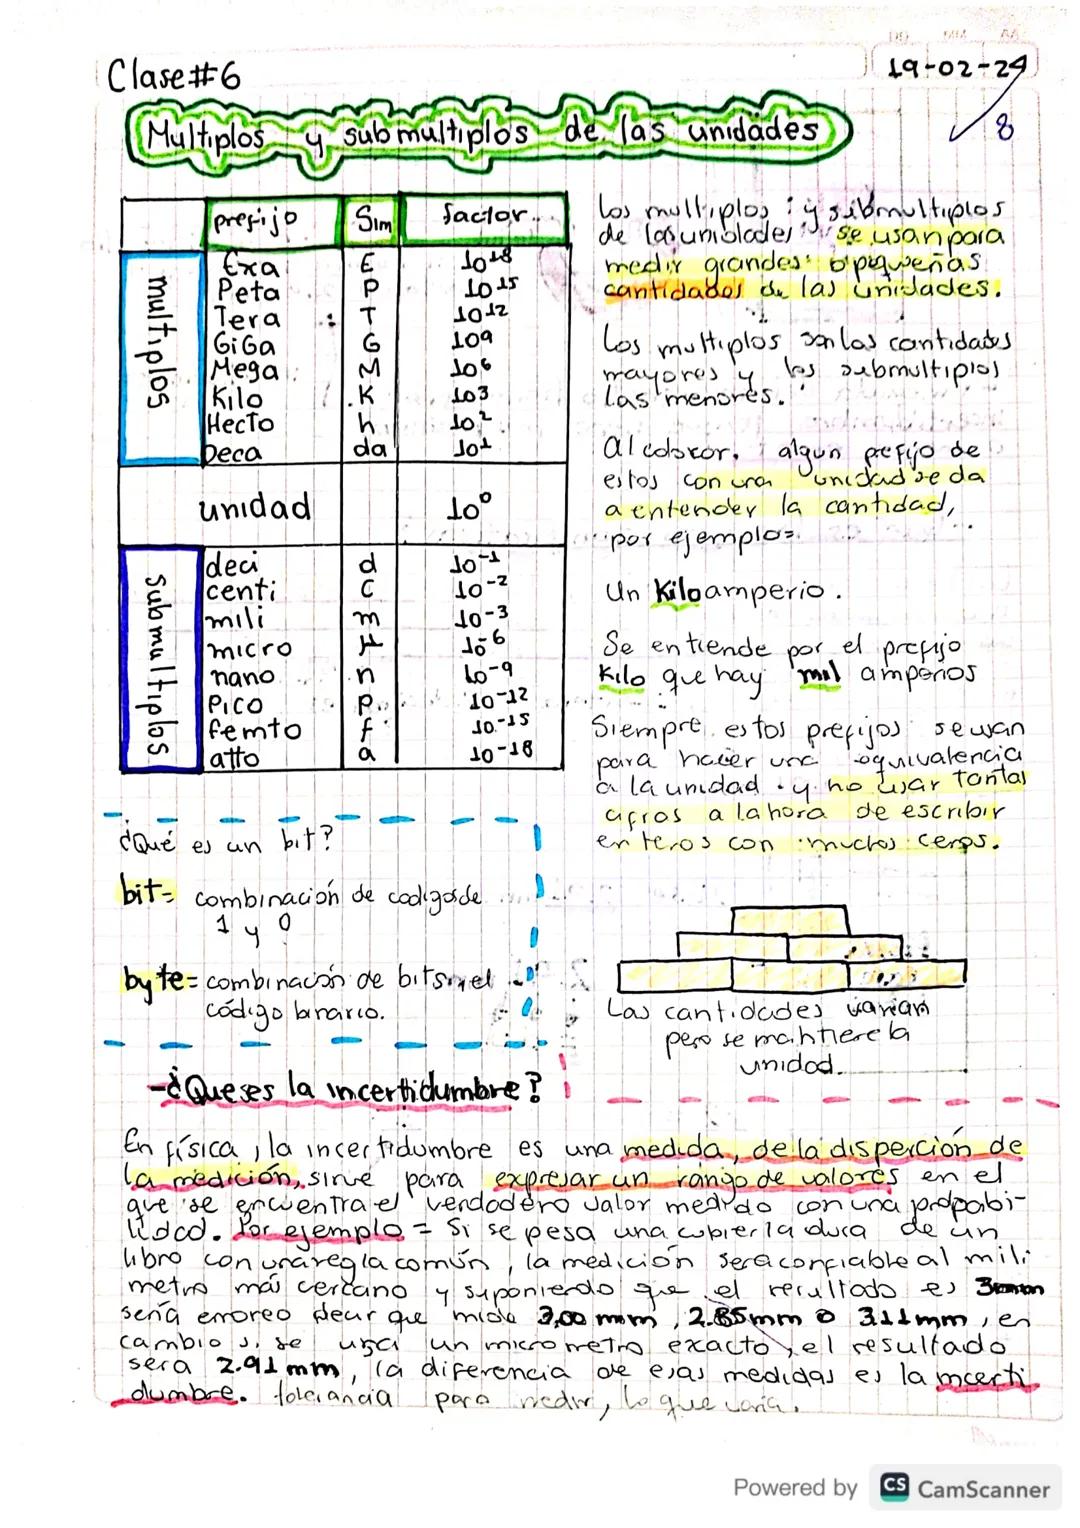 DD MM AA
Clase#6
19-02-24
8
Multiplos y submultiplos de las unidades
prefijo Sim factor
multiplos
Exa E 10^18
Peta P 10^15
Tera T 10^12
GiGa G 10^9
Mega M 10^6
Kilo K 10^3
Hecto h 10^2
Deca da 10^1
unidad 10^0
submultiplos
deci d 10^-1
centi C 10^-2
mili m 10^-3
micro µ 10^-6
nano n 10^-9
Pico P 10^-12
femto f 10^-15
atto a 10^-18
Los multiplos y submultiplos
de las unidades se usan para
medir grandes o pequeñas
cantidades de las unidades.
Los multiplos son las cantidades
mayores y los submultiplos
las menores.
Al colocar, algun prefijo de
estos con una unidad se da
a entender la cantidad,
por ejemplo=
Un Kiloamperio.
Se entiende por el prefijo
Kilo que hay mil amperios
Siempre estos prefijos se usan
para hacer una equivalencia
a la unidad y no usar tantas
cifras a la hora de escribir
enteros con muchos ceros.
¿Qué es un bit?
bit= combinación de codigos de
1 y 0
byte= combinación de bits en el
código binario.
Las cantidades varian
pero se mantiene la
unidad.
-¿Que es la incertidumbre?
En física, la incertidumbre es una medida, de la disperción de
la medición, sirve para expresar un rango de valores en el
que se encuentra el verdadero valor medido con una probabi-
lidad. Por ejemplo = Si se pesa una cubierta dura de un
libro con una regla común, la medición sera confiable al mili
metro más cercano y suponiendo que el resultado es 3mm
sería erroreo decir que mide 3,00 mm, 2.85mm o 3.11mm, en
cambio si se usa un micrometro exacto, el resultado
sera 2.91 mm, la diferencia de esas medidas es la incerti
dumbre. tolerancia para medir, lo que varia.
Powered by CS CamScanner